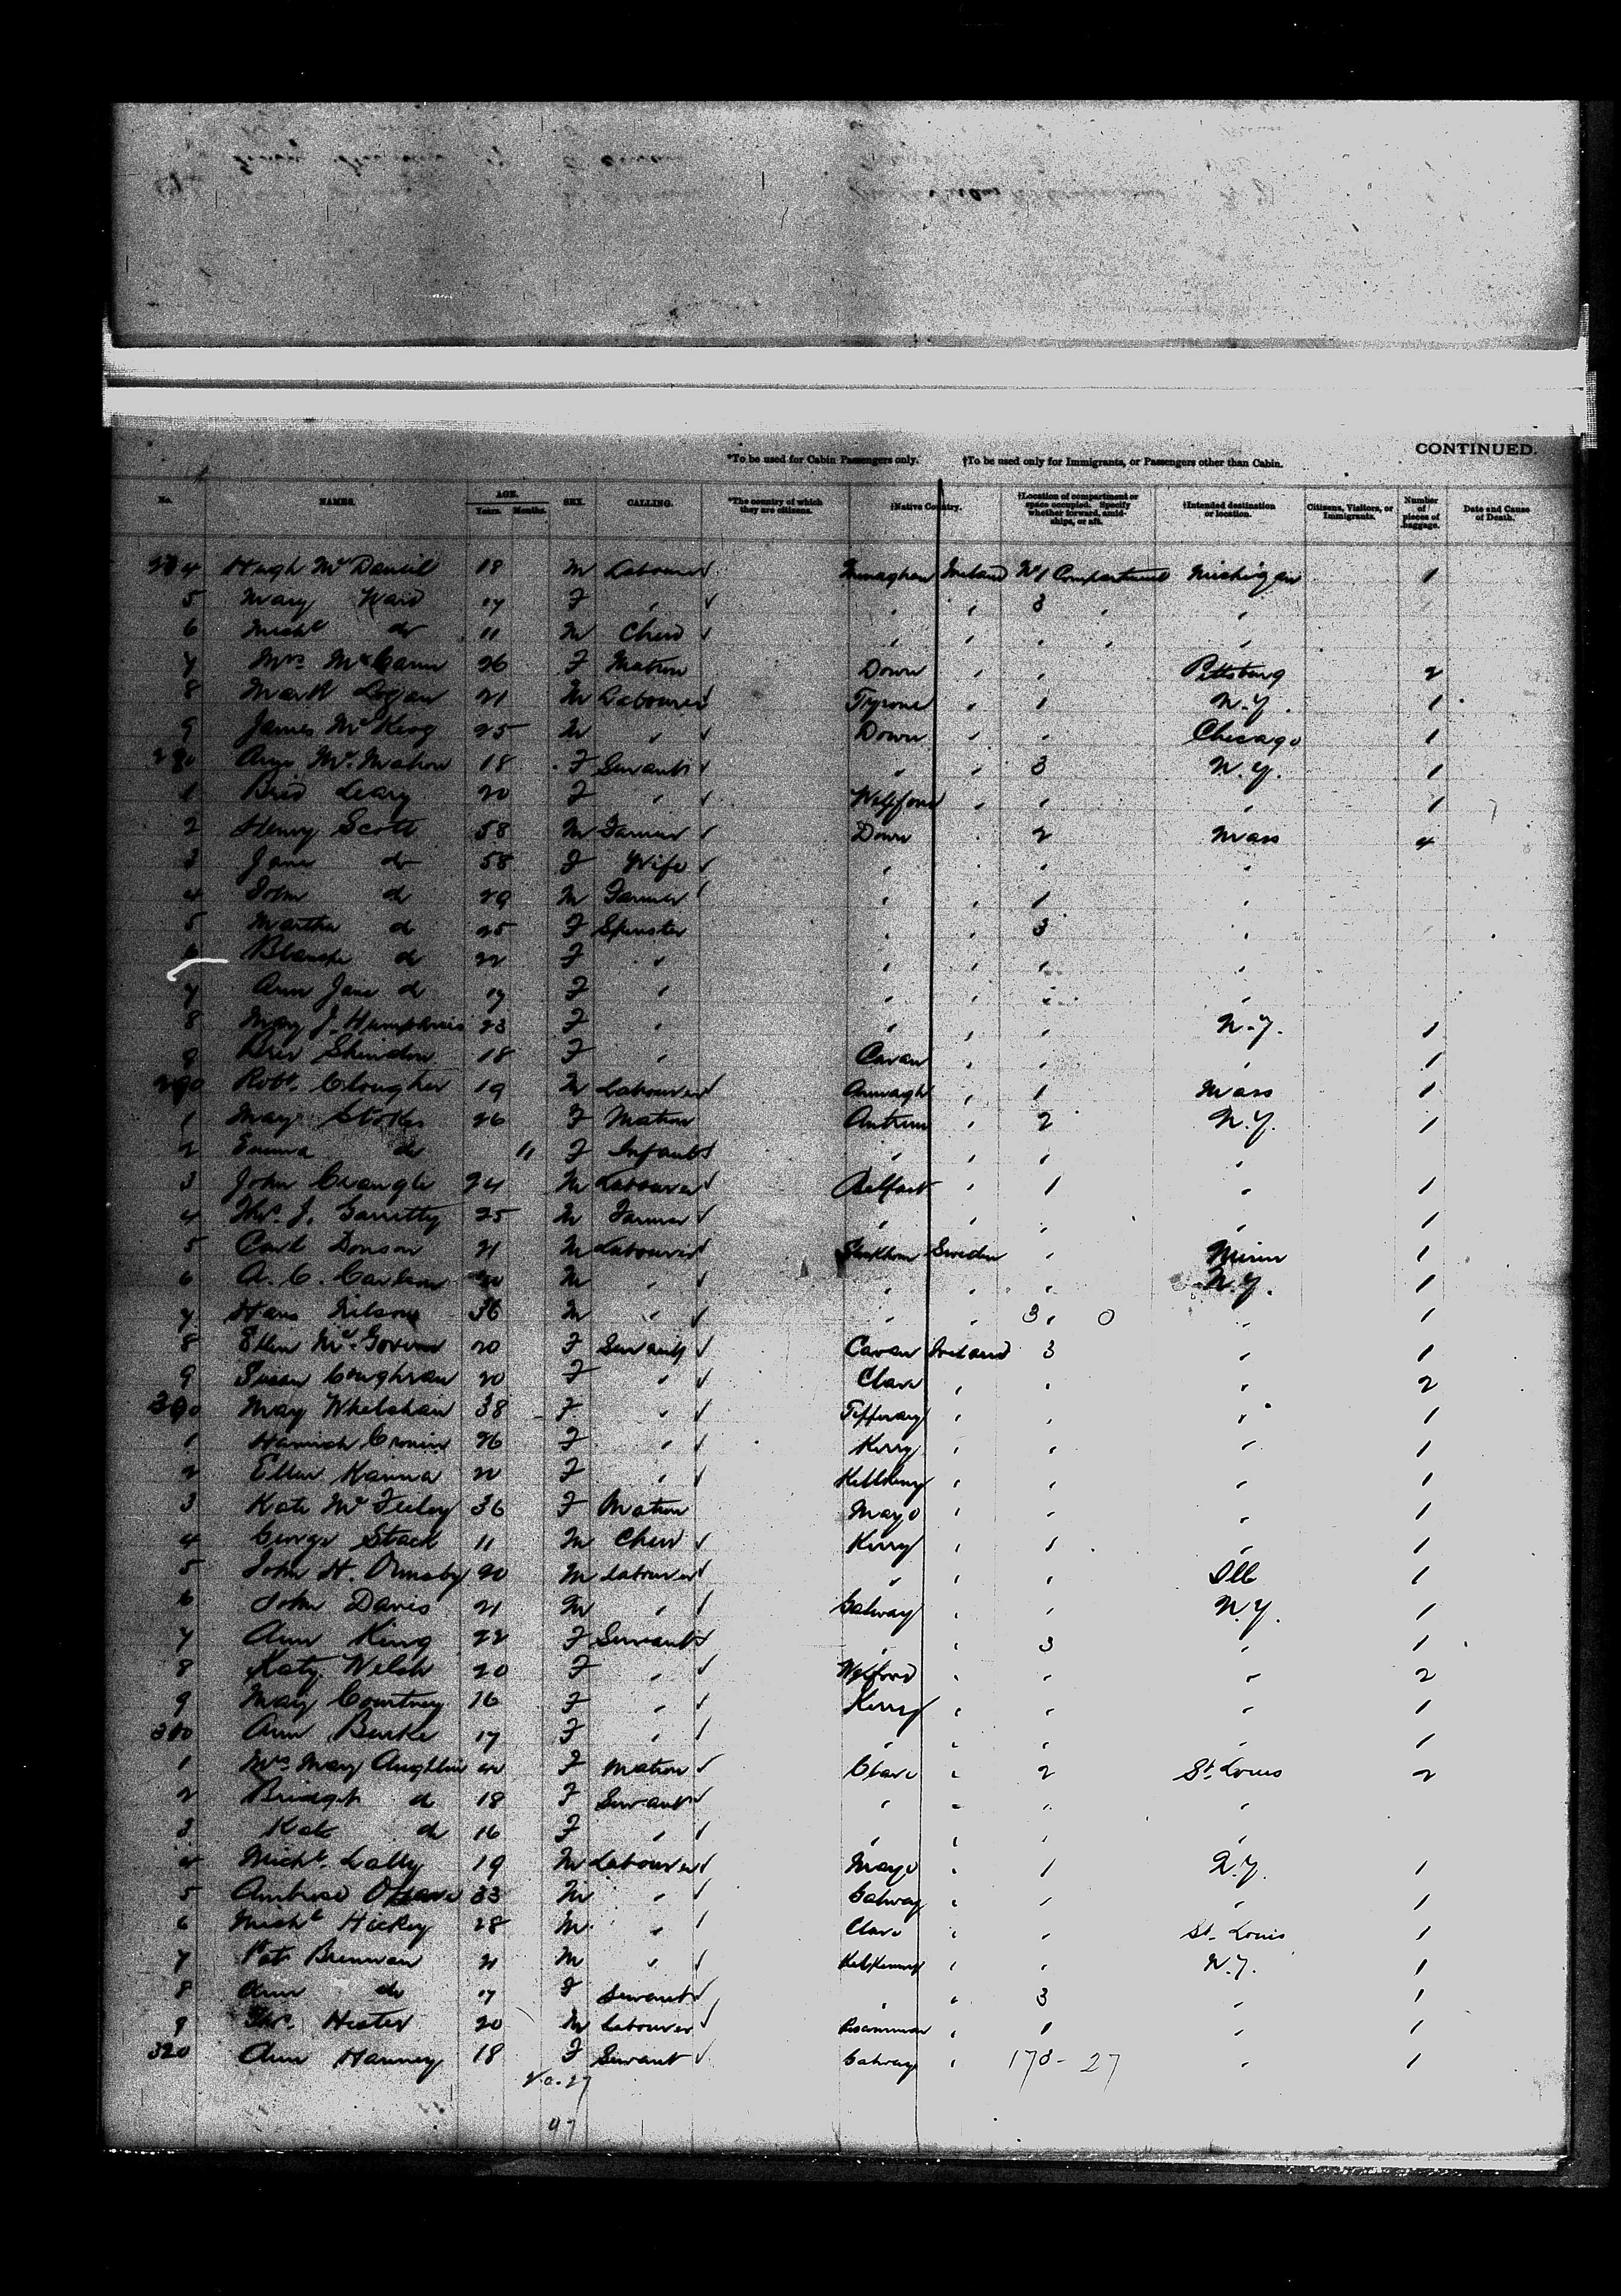 CONTINUED.
*To be used for Cabin Passengers only. †To be used only for Immigrants, or Passengers other than Cabin.
No. NAMES. AGE. Years. Months. SEX. CALLING. *The country of which they are citizens. †Native Country. †Location of compartment or space occupied. Specify whether forward, amidships, or aft. †Intended destination or location. Citizens, Visitors, or Immigrants. Number of pieces of baggage. Date and Cause of Death.
4 Hugh McDaniel 18 M Labourer Monaghan Ireland No 1 Compartment Michigan 1
5 Mary Ward 17 F " " " 3 " "
6 Michl do 11 M Child " " " " "
7 Mrs McCann 26 F Matron Down " " Pittsburg 2
8 Mark Logan 21 M Labourer Tyrone " 1 N.Y. 1
9 James McKeog 25 M " Down " " Chicago 1
280 McMahon 18 F Servant " " 3 N.Y. 1
1 Brid Leary 20 F " Wexford " " " 1
2 Henry Scott 58 M Farmer Down " 2 Mass 4
3 Jane do 58 F Wife " " "
4 John do 29 M Farmer " 1 "
5 Martha do 25 F Spinster " " 3 "
6 Blanche do 22 F " " " " "
7 Ann Jane do 17 F " " " " "
8 May J. Humphries 23 F " " " " N.Y. 1
9 18 F " Cavan " " " 1
290 Robt. Clougher 19 M Labourer Armagh " 1 Mass 1
1 May Stokes 26 F Matron Antrim " 2 N.Y. 1
2 Emma do 11 F Infant " " " "
3 John Crangle 24 M Labourer Belfast " 1 " 1
4 Thos. J. Garretty 25 M Farmer " " " " 1
5 Carl 21 M Labourer Stockholm Sweden " Minn 1
6 A. C. Carlson 20 M " " " " N.Y. 1
7 Hans Nilson 36 M " " " 3 " 0 " 1
8 Ellen McGovern 20 F Servant Cavan Ireland 3 " 1
9 Susan Coughran 20 F " Clare " " " 2
300 May Whelehan 38 F " Tipperary " " " 1
1 Hannah Cronin 26 F " Kerry " " " 1
2 Ellen Hanna 20 F " Kilkenny " " " 1
3 Kate McFeeley 36 F Matron Mayo " " " 1
4 George Stack 11 M Child Kerry " 1 " 1
5 John H. Ormsby 20 M Labourer " " " Ill 1
6 John Davis 21 M " Galway " " N.Y. 1
7 Ann King 22 F Servant " " 3 " 1
8 Katy Welsh 20 F " Wexford " " " 2
9 May Courtney 16 F " Kerry " " " 1
310 Ann Burke 17 F " " " " " 1
1 Mrs May Aughlin F Matron Clare " 2 St. Louis 2
2 Bridget do 18 F Servant " " " "
3 Kate do 16 F " " " " "
4 Michl. Lally 19 M Labourer Mayo " 1 N.Y. 1
5 Ambrose 33 M " Galway " " " 1
6 Michl Hickey 28 M " Clare " " St. Louis 1
7 Pat Brennan 21 M " Kilkenny " " N.Y. 1
8 Ann do 17 F Servant " " 3 " 1
9 Thos. Hester 20 M Labourer Roscommon " 1 " 1
320 Ann Hanney 18 F Servant Galway " 178 - 27 " 1
97